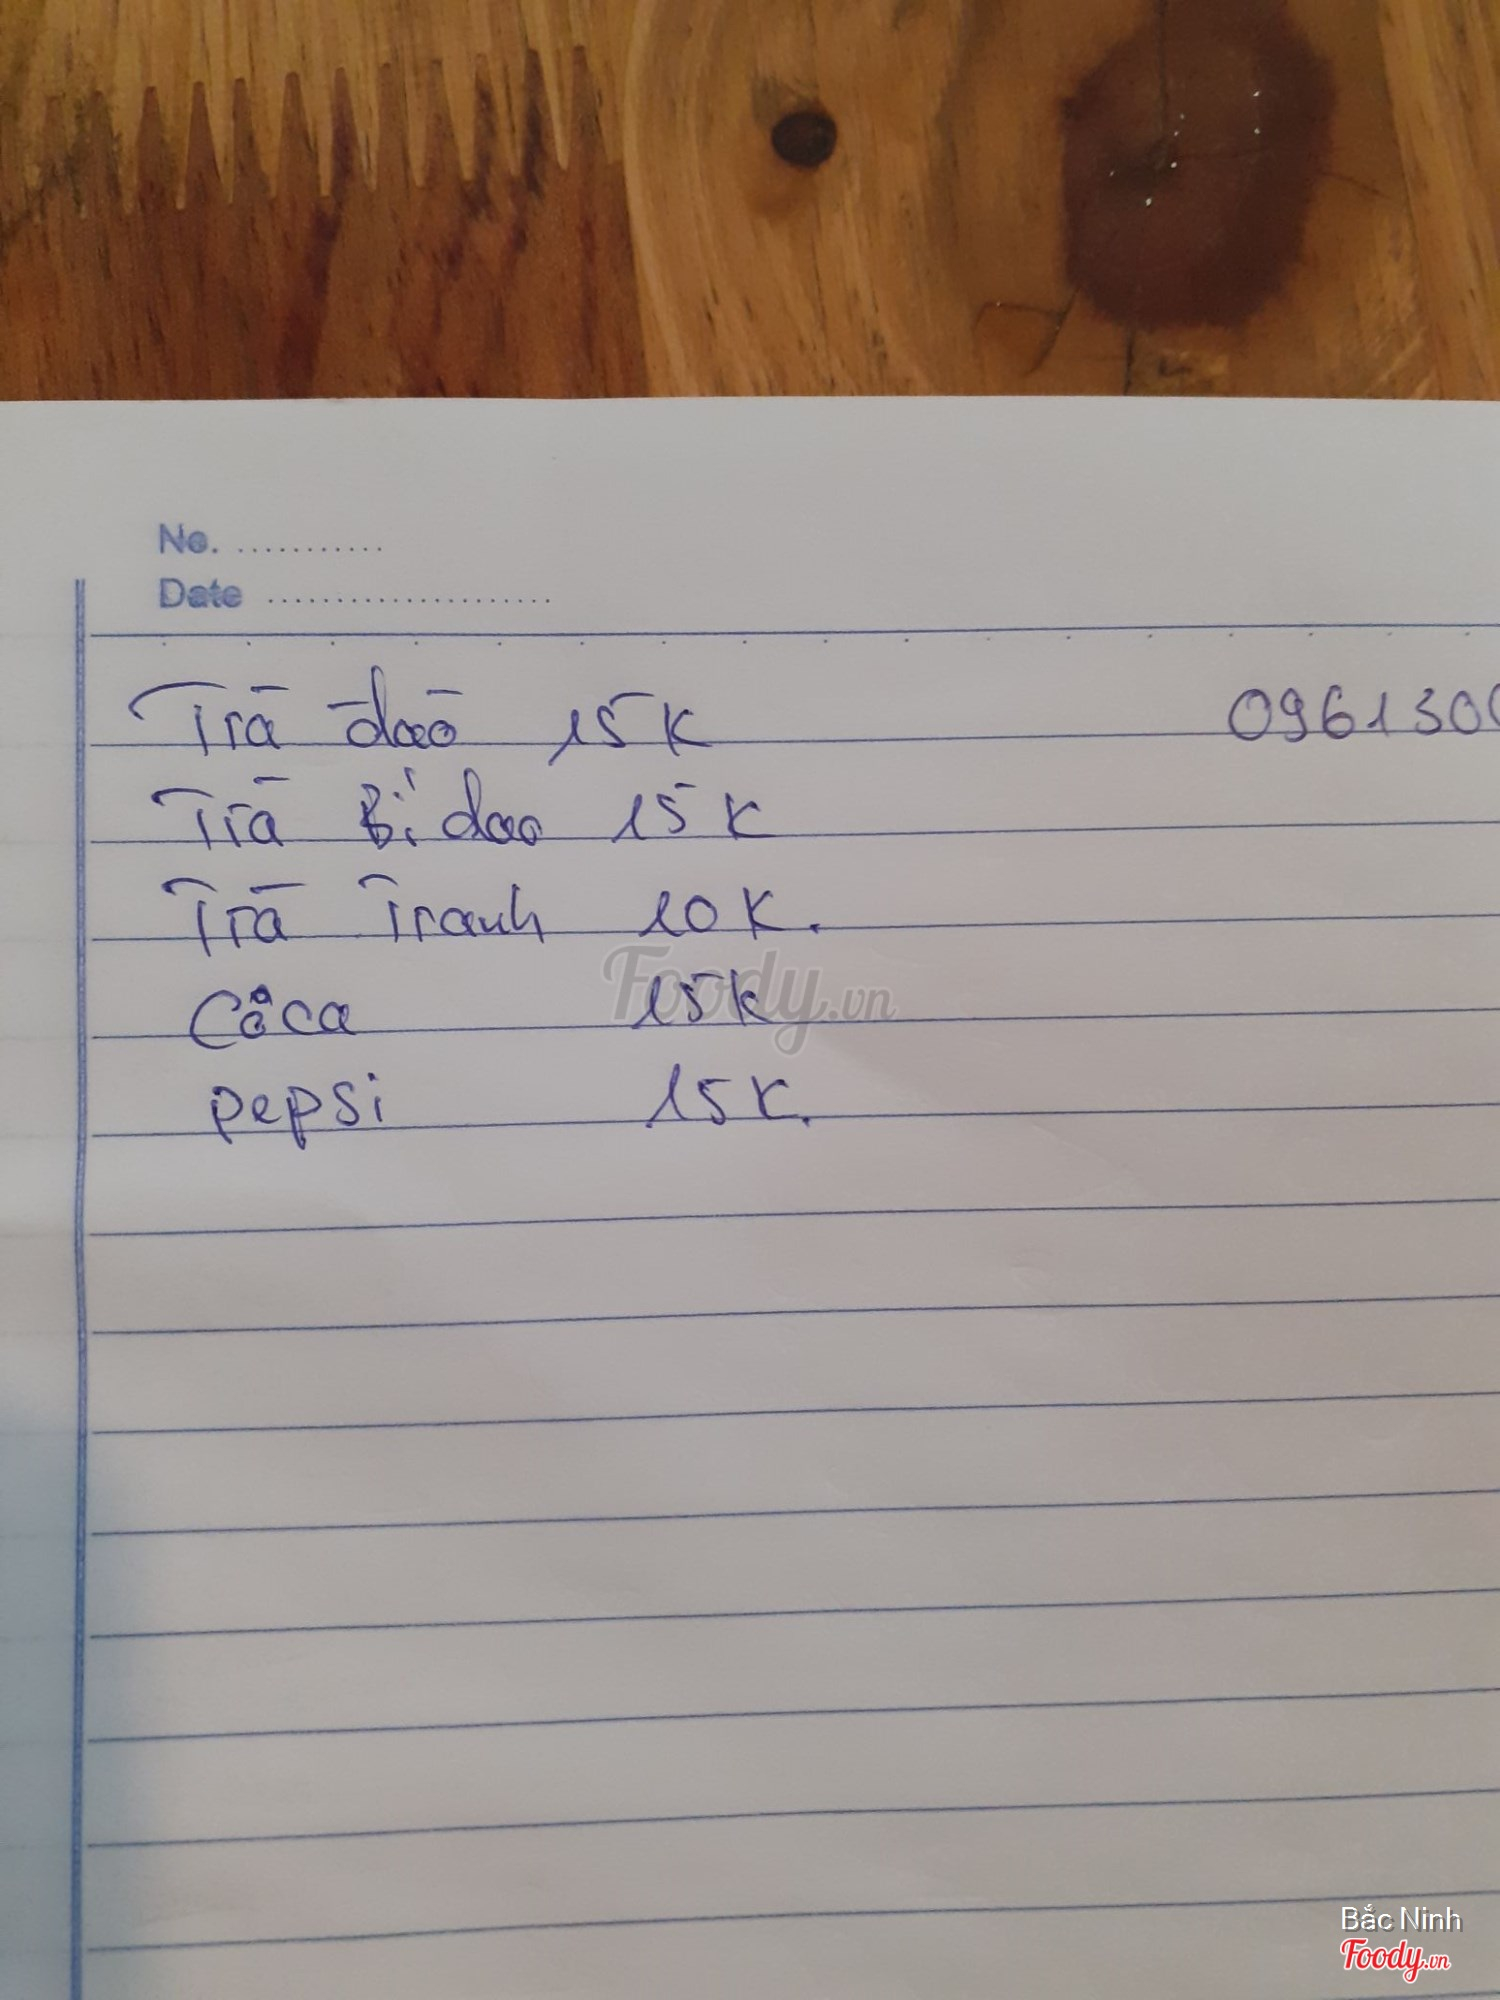 No. ............
Date ......................
Trà đào 15K 096130
Trà Bí đao 15K
Trà Tranh 10K.
Côca 15K
pepsi 15K.
Foody.vn
Bắc Ninh
Foody.vn